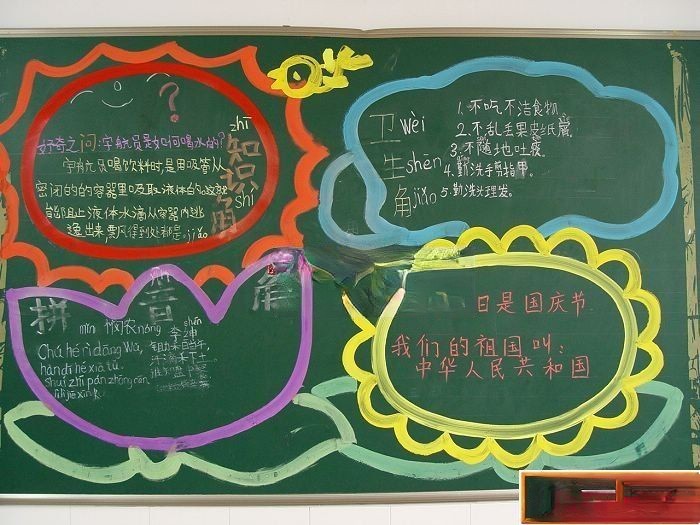 好奇之问:宇航员是如何喝水的?
宇航员喝饮料时,是用吸管从
密闭的的容器里吸取液体的,这就
能阻止液体水滴从容器内逃
逸出来,飘得到处都是。
zhī
知识角
shí
jiǎo
卫 wèi
生 shēng
角 jiǎo
1.不吃不洁食物。
2.不乱丢果皮纸屑。
3.不随地吐痰。
4.勤洗手剪指甲。
5.勤洗头理发。
拼音角
mǐn 悯农 nóng
李绅 shēn
Chú hé rì dāng wǔ,
hàn dī hé xià tǔ.
shuí zhī pán zhōng cān,
锄禾日当午,
汗滴禾下土。
日是国庆节
我们的祖国叫:
中华人民共和国